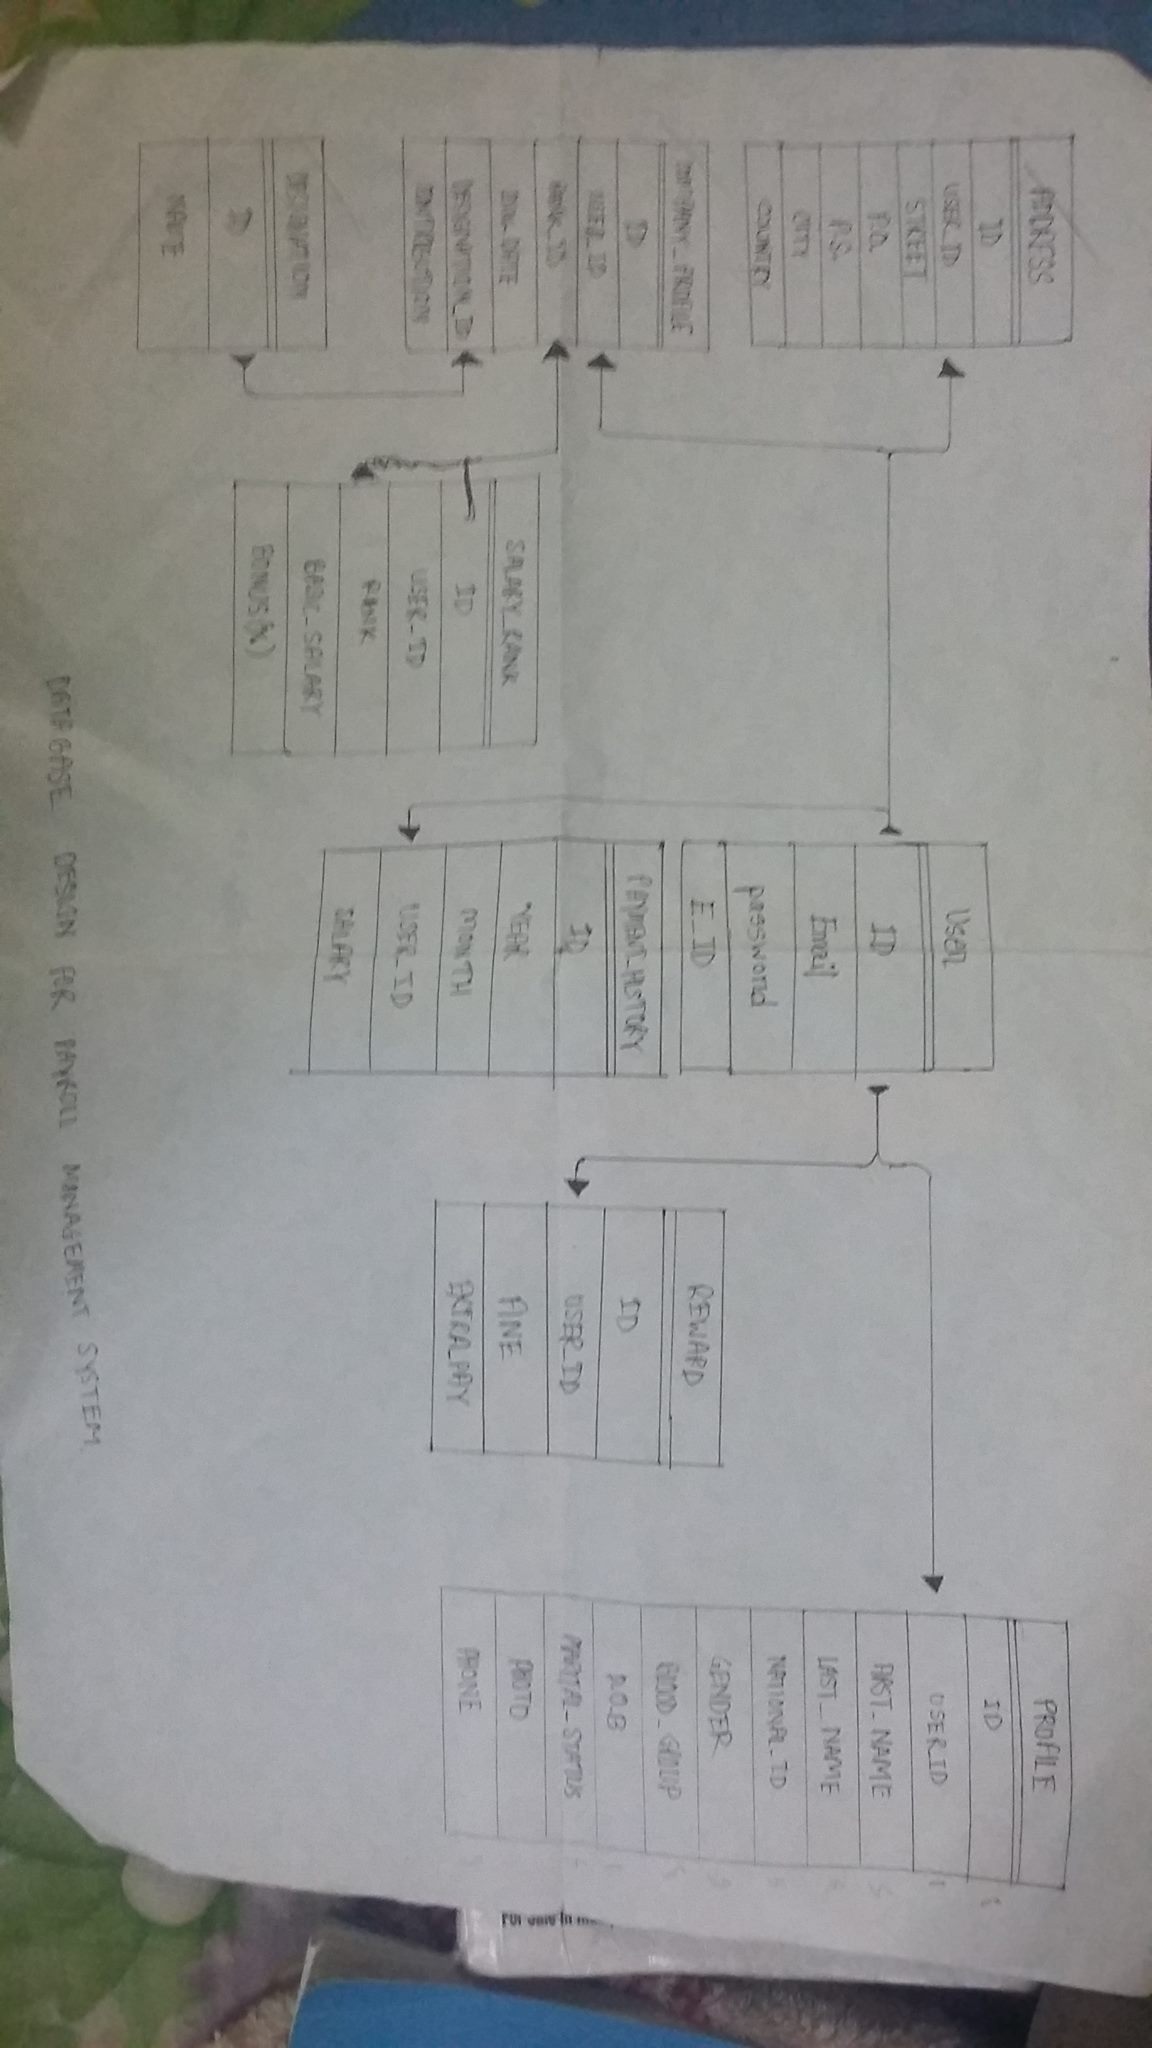 ADDRESS
ID
USER_ID
STREET
P.O.
P.S.
CITY
COUNTRY
COMPANY_PROFILE
ID
USER_ID
RANK_ID
DATE
DESIGNATION_ID
DESIGNATION
ID
NAME
SALARY_RANK
ID
USER_ID
RANK
BASIC_SALARY
BONUS(%)
User
ID
Email
password
E_ID
PAYMENT_HISTORY
ID
YEAR
MONTH
USER_ID
SALARY
REWARD
ID
USER_ID
FINE
EXTRA_PAY
PROFILE
ID
USER_ID
FIRST_NAME
LAST_NAME
NATIONAL_ID
GENDER
BLOOD_GROUP
D.O.B
MARITAL_STATUS
PHOTO
PHONE
DATABASE DESIGN FOR PAYROLL MANAGEMENT SYSTEM